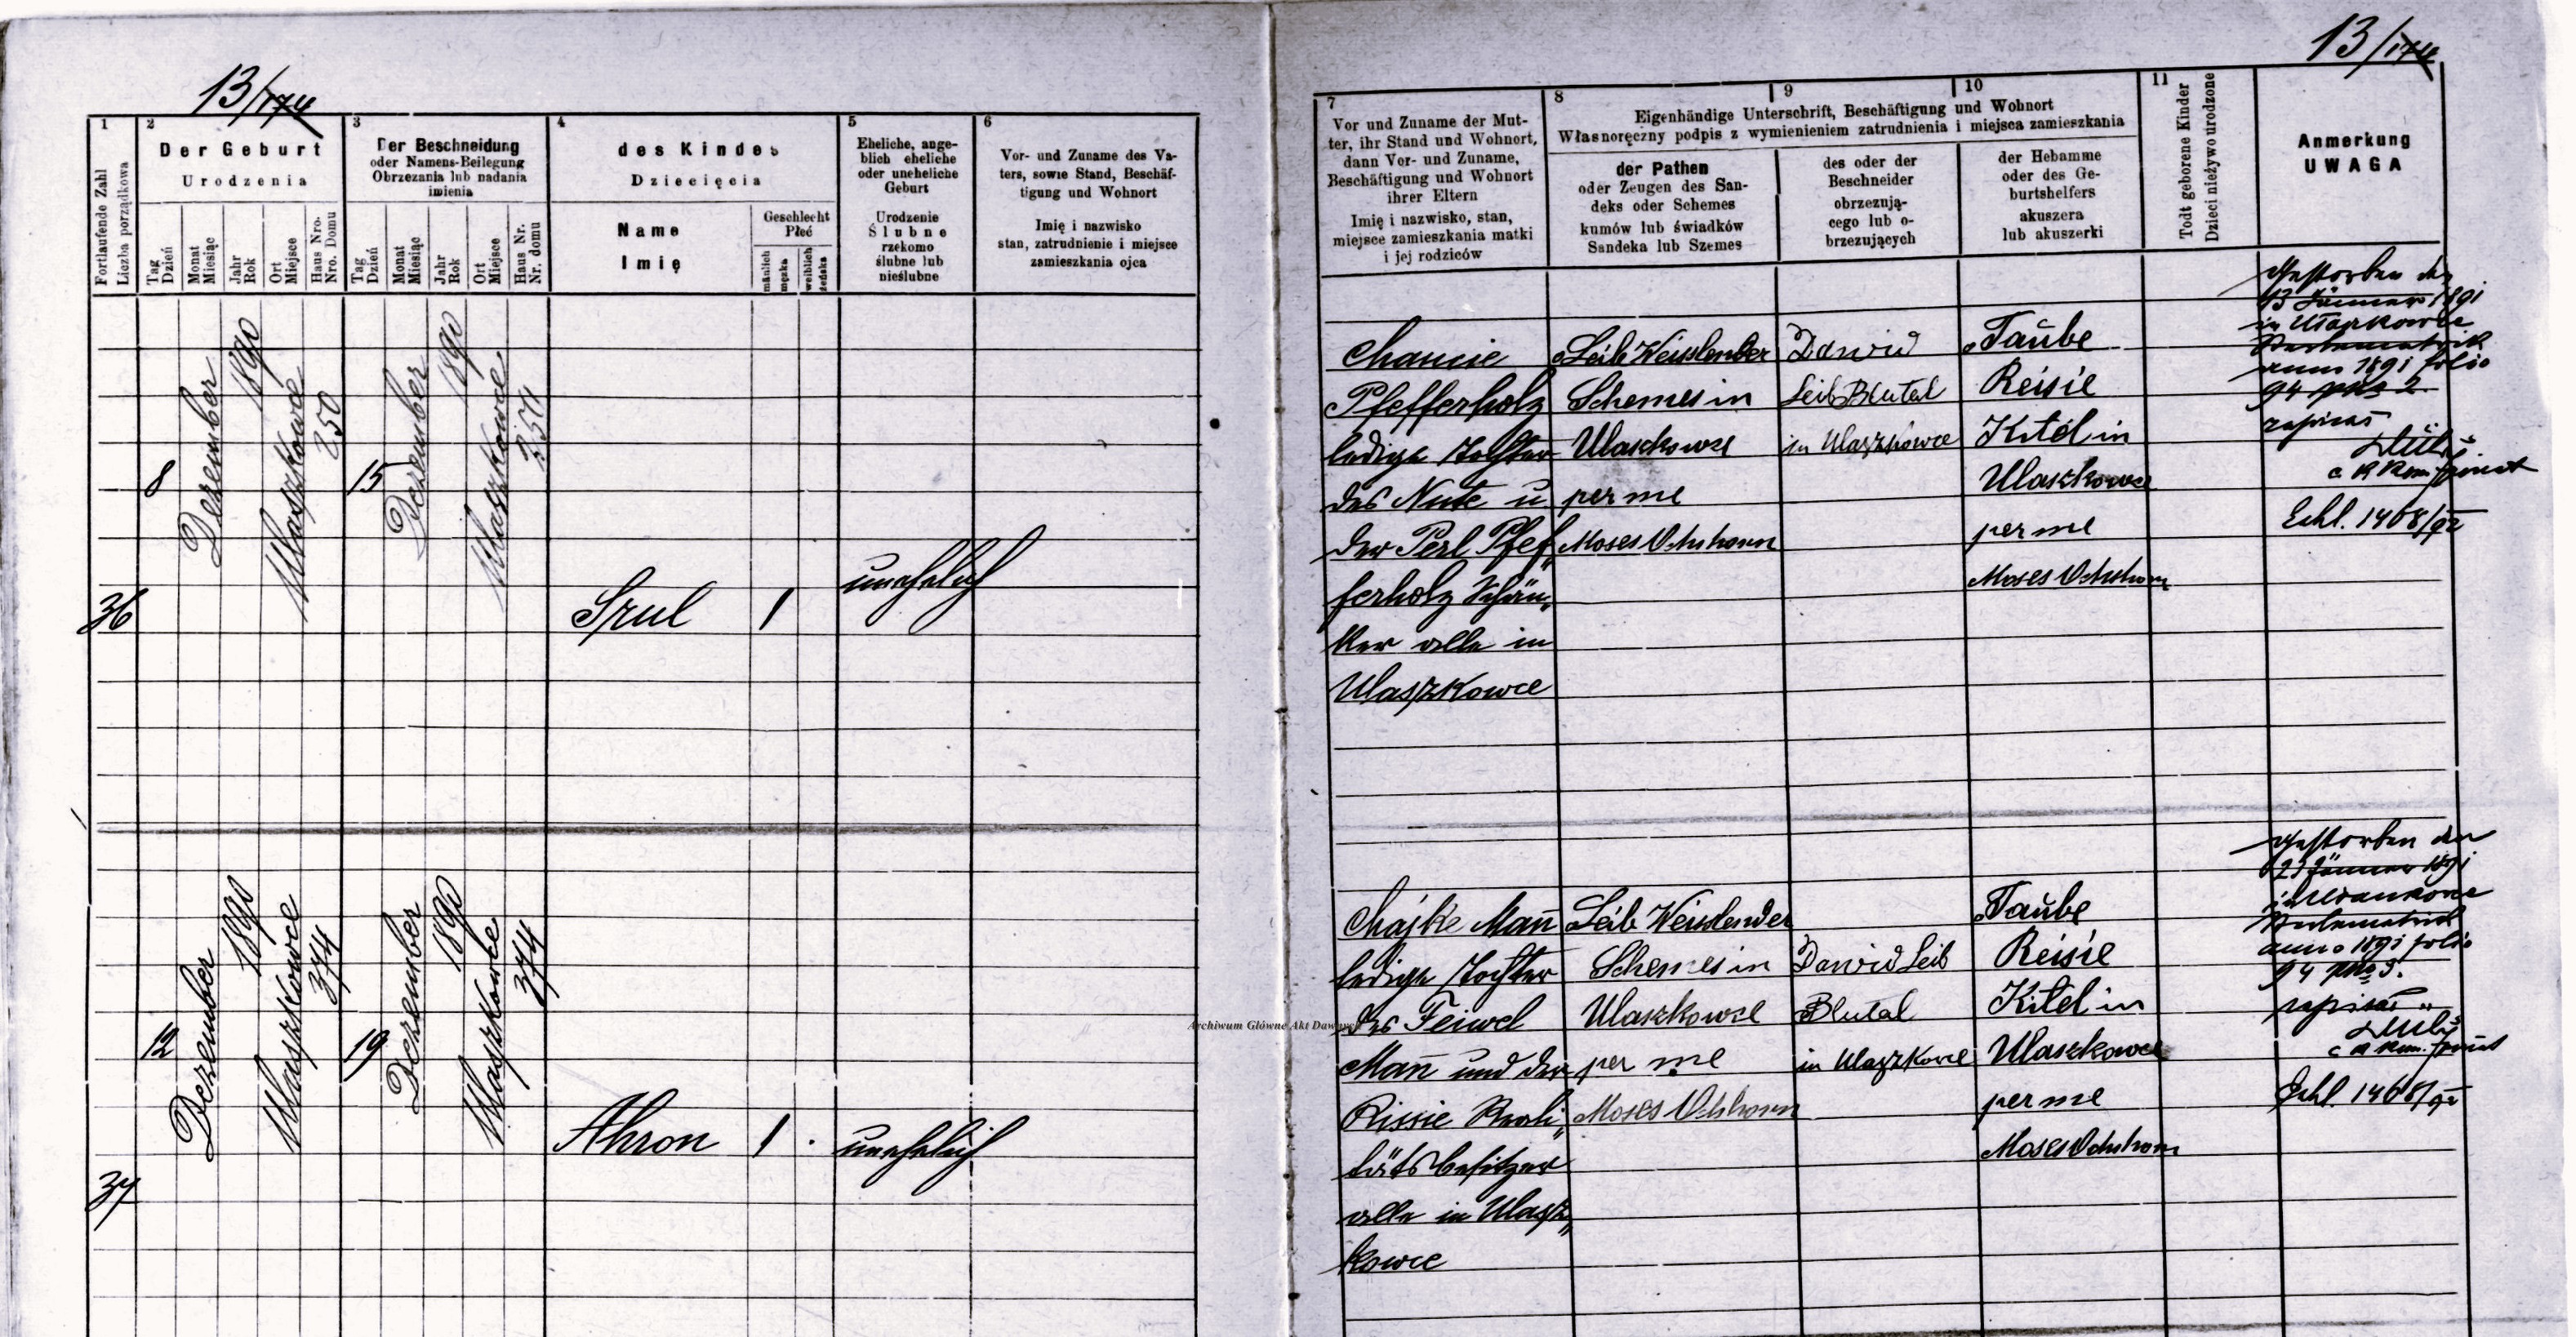 13/174
13/174
1 2 3 4 5 6
Fortlaufende Zahl
Liczba porządkowa
Der Geburt
Urodzenia
Tag
Dzień
Monat
Miesiąc
Jahr
Rok
Ort
Miejsce
Haus Nro.
Nro. Domu
Der Beschneidung
oder Namens-Beilegung
Obrzezania lub nadania
imienia
Tag
Dzień
Monat
Miesiąc
Jahr
Rok
Ort
Miejsce
Haus Nr.
Nr. domu
des Kindes
Dziecięcia
Name
Imię
Geschlecht
Płeć
mänlich
męzka
weiblich
żeńska
Eheliche, ange-
blich eheliche
oder uneheliche
Geburt
Urodzenie
Ślubne
rzekomo
ślubne lub
nieślubne
Vor- und Zuname des Va-
ters, sowie Stand, Beschäf-
tigung und Wohnort
Imię i nazwisko
stan, zatrudnienie i miejsce
zamieszkania ojca
7 8 9 10 11
Vor und Zuname der Mut-
ter, ihr Stand und Wohnort,
dann Vor- und Zuname,
Beschäftigung und Wohnort
ihrer Eltern
Imię i nazwisko, stan,
miejsce zamieszkania matki
i jej rodziców
Eigenhändige Unterschrift, Beschäftigung und Wohnort
Własnoręczny podpis z wymienieniem zatrudnienia i miejsca zamieszkania
der Pathen
oder Zeugen des San-
deks oder Schemes
kumów lub świadków
Sandeka lub Szemes
des oder der
Beschneider
obrzezują-
cego lub o-
brzezujących
der Hebamme
oder des Ge-
burtshelfers
akuszera
lub akuszerki
Todt geborene Kinder
Dzieci nieżywo urodzone
Anmerkung
UWAGA
36
8
Dezember
1890
Ulaszkowce
250
15
Dezember
1890
Ulaszkowce
250
Srul
1
unehelich
Chancie
Pfefferholz
ledige Tochter
des Nute u
der Perl Pfef„
ferholz Schän„
ker alle in
Ulaszkowce
Leib Weisslender
Schemes in
Ulaszkowce
per me
Moses Ochshorn
Dawid
Leib Blutal
in Ulaszkowce
Taube
Reisie
Kitel in
Ulaszkowce
per me
Moses Ochshorn
Gestorben den
13 Jänner 1891
in Ułaszkowce
Sterbematrik
anno 1891 folio
94 2
zapisał
Echl. 1468/92
37
12
Dezember
1890
Ulaszkowce
374
19
Dezember
1890
Ulaszkowce
374
Ahron
1
unehelich
Chajke Mañ
ledige Tochter
des Feiwel
Mañ und der
Rissie Reali„
tätsbesitzer
alle in Ulasz„
kowce
Leib Weisslender
Schemes in
Ulaszkowce
per me
Moses Ochshorn
Dawid Leib
Blutal
in Ulaszkowce
Taube
Reisie
Kitel in
Ulaszkowce
per me
Moses Ochshorn
Gestorben den
Jänner 1891
Sterbematrik
anno 1891 folio
94 3.
zapisał
Echl. 1468/92
Archiwum Główne Akt Dawnych